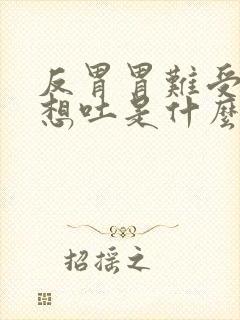 反胃胃難受
想吐是什麼
招摇之